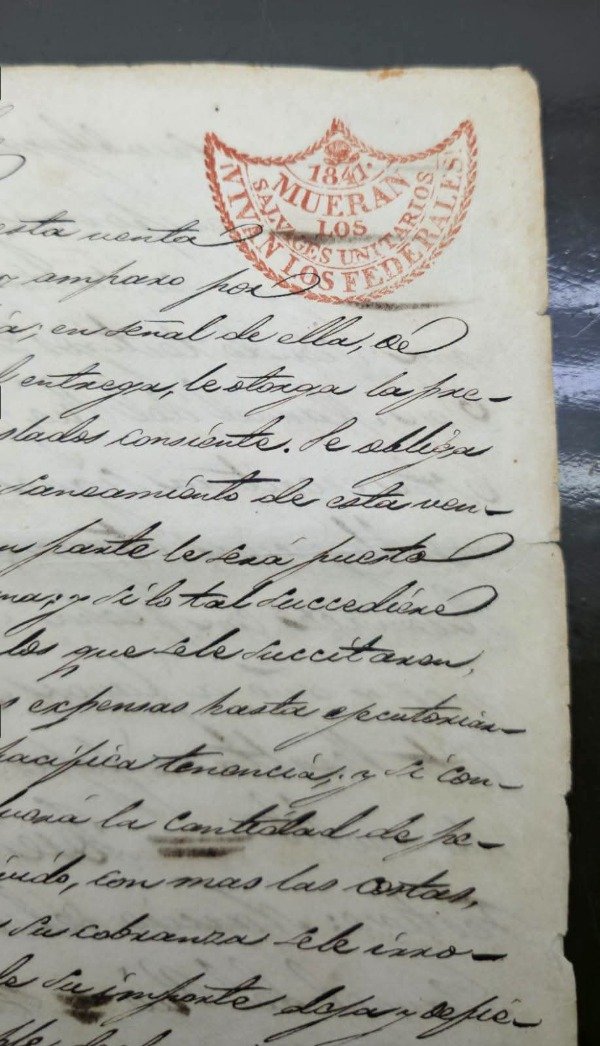 1841.
MUERAN
LOS
SALVAGES UNITARIOS
VIVAN LOS FEDERALES
esta venta
y amparo por
en señal de ella, de
entrega, le otorga la pre-
consiente. Se obliga
saneamiento de esta ven-
parte le será puesto
y si lo tal succediére
los que se le succitaren,
expensas hasta ejecutorián-
pacifica tenencia; y si con-
la cantidad de pe-
con mas las costas,
su cobranza se le irro-
de su importe deja y defie-